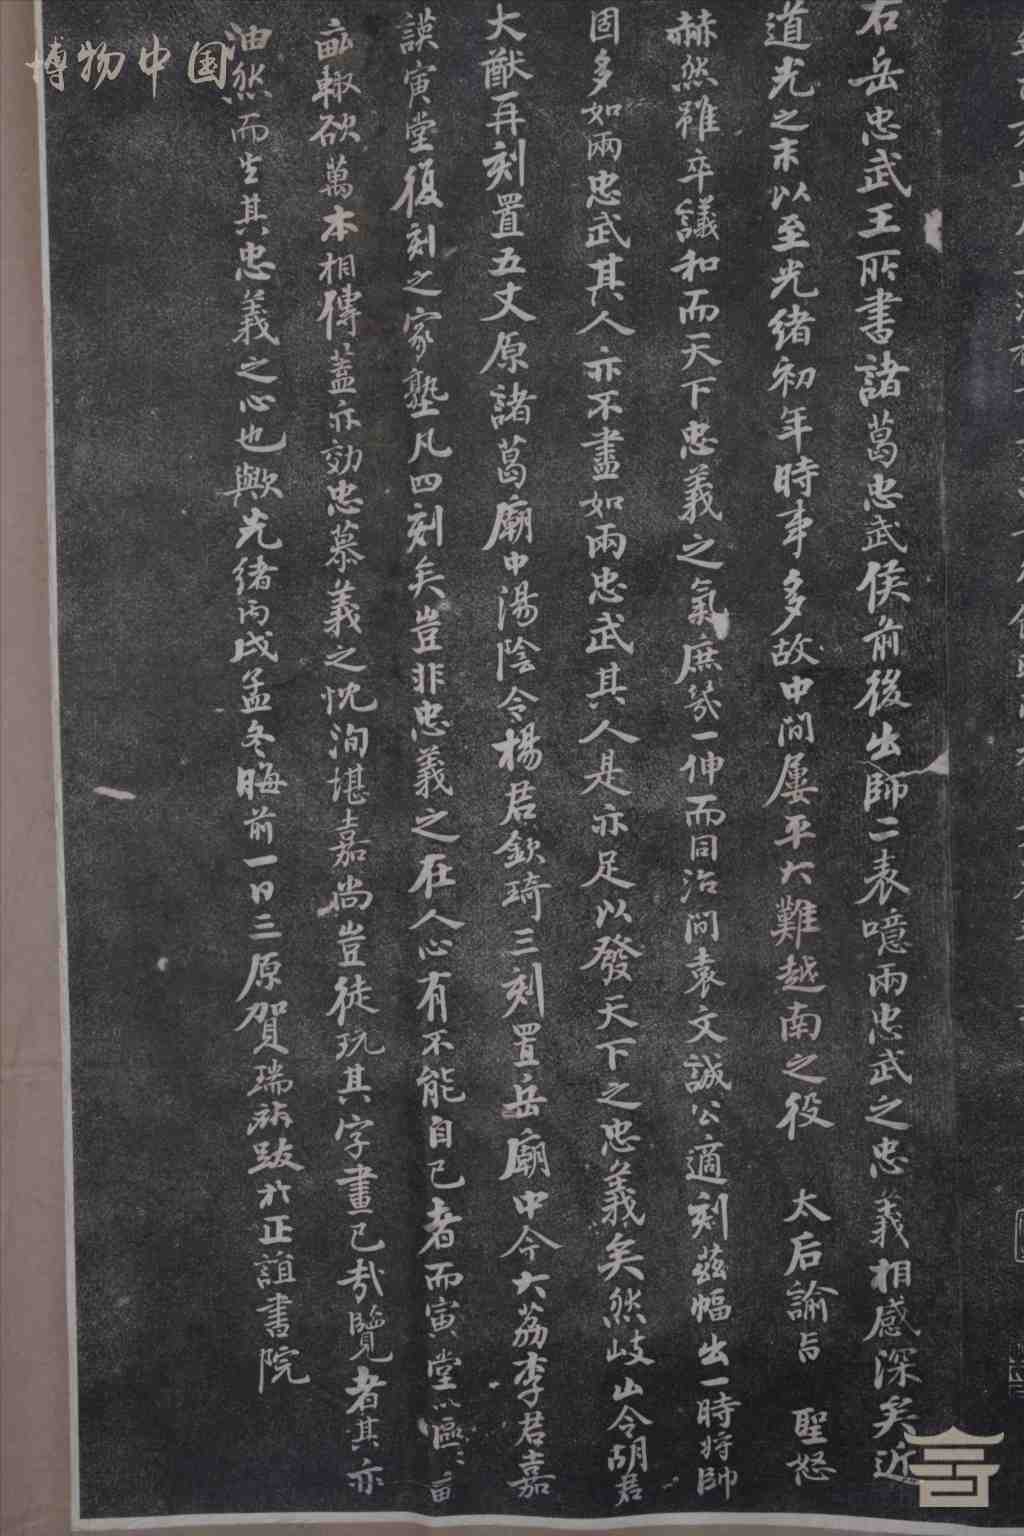 右岳忠武王所書諸葛忠武侯前後出師二表噫兩忠武之忠義相感深矣近
道光之末以至光緒初年時事多故中間屢平大難越南之役 太后諭旨 聖怒
赫然雖卒議和而天下忠義之氣庶幾一伸而同治間袁文誠公適刻茲幅出一時將帥
固多如兩忠武其人亦不盡如兩忠武其人是亦足以發天下之忠義矣然岐山令胡君
大猷再刻置五丈原諸葛廟中湯陰令楊君欽琦三刻置岳廟中今大荔李君嘉
謨寅堂復刻之家塾凡四刻矣豈非忠義之在人心有不能自已者而寅堂以區區
畝輙欲萬本相傳蓋亦効忠慕義之忱洵堪嘉尚豈徒玩其字畫已哉覽者其亦
油然而生其忠義之心也歟光緒丙戌孟冬晦前一日三原賀瑞麟跋於正誼書院
博物中国